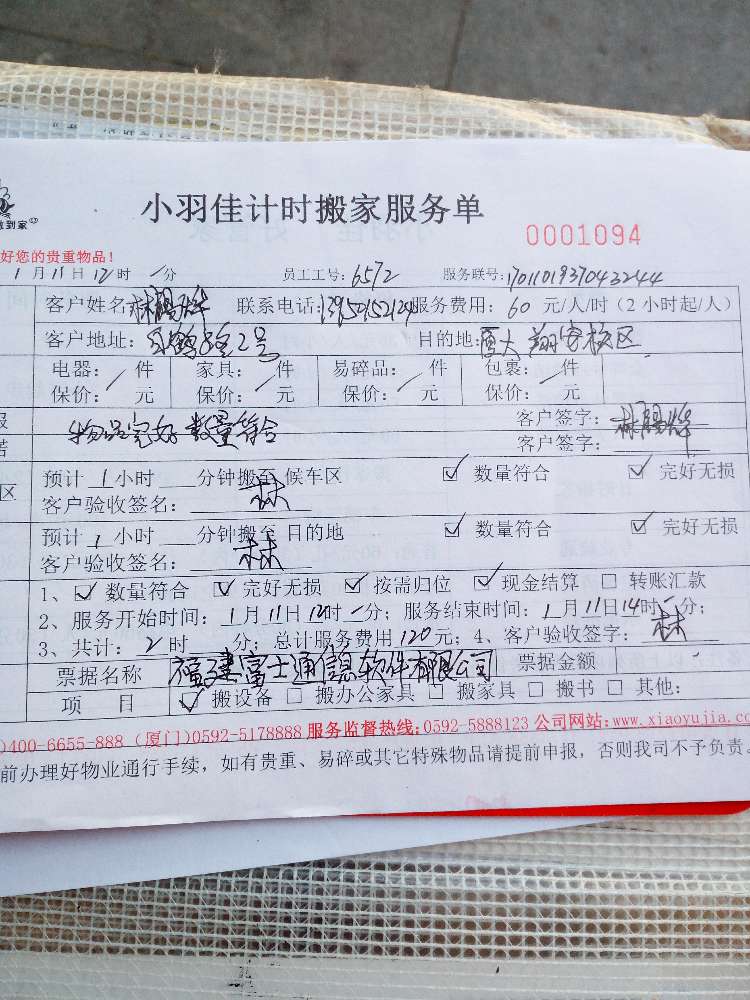 小羽佳计时搬家服务单
0001094
到家
好您的贵重物品!
1月11日12时 分 员工工号:6572 服务联号:1701101937043244
客户姓名: 林 联系电话:13950152124 服务费用:60元/人/时(2小时起/人)
客户地址: 2号 目的地:厦大翔安校区
电器: / 件 家具: / 件 易碎品: / 件 包裹: / 件
保价: 元 保价: 元 保价: 元 保价: 元
物品完好 数量符合
客户签字:林
客户签字:
区 预计1小时 分钟搬至 候车区 ☑ 数量符合 ☑ 完好无损
客户验收签名: 林
预计1小时 分钟搬至 目的地 ☑ 数量符合 ☑ 完好无损
客户验收签名: 林
1、☑ 数量符合 ☑ 完好无损 ☑ 按需归位 ☑ 现金结算 □ 转账汇款
2、服务开始时间:1月11日12时 分;服务结束时间:1月11日14时 分;
3、共计:2时 分;总计服务费用120元;4、客户验收签字:林
票据名称 福建富士通信息软件有限公司 票据金额
项 目 ☑ 搬设备 □ 搬办公家具 □ 搬家具 □ 搬书 □ 其他:
)400-6655-888 (厦门)0592-5178888 服务监督热线:0592-5888123 公司网站:www.xiaoyujia.com
前办理好物业通行手续,如有贵重、易碎或其它特殊物品请提前申报,否则我司不予负责。